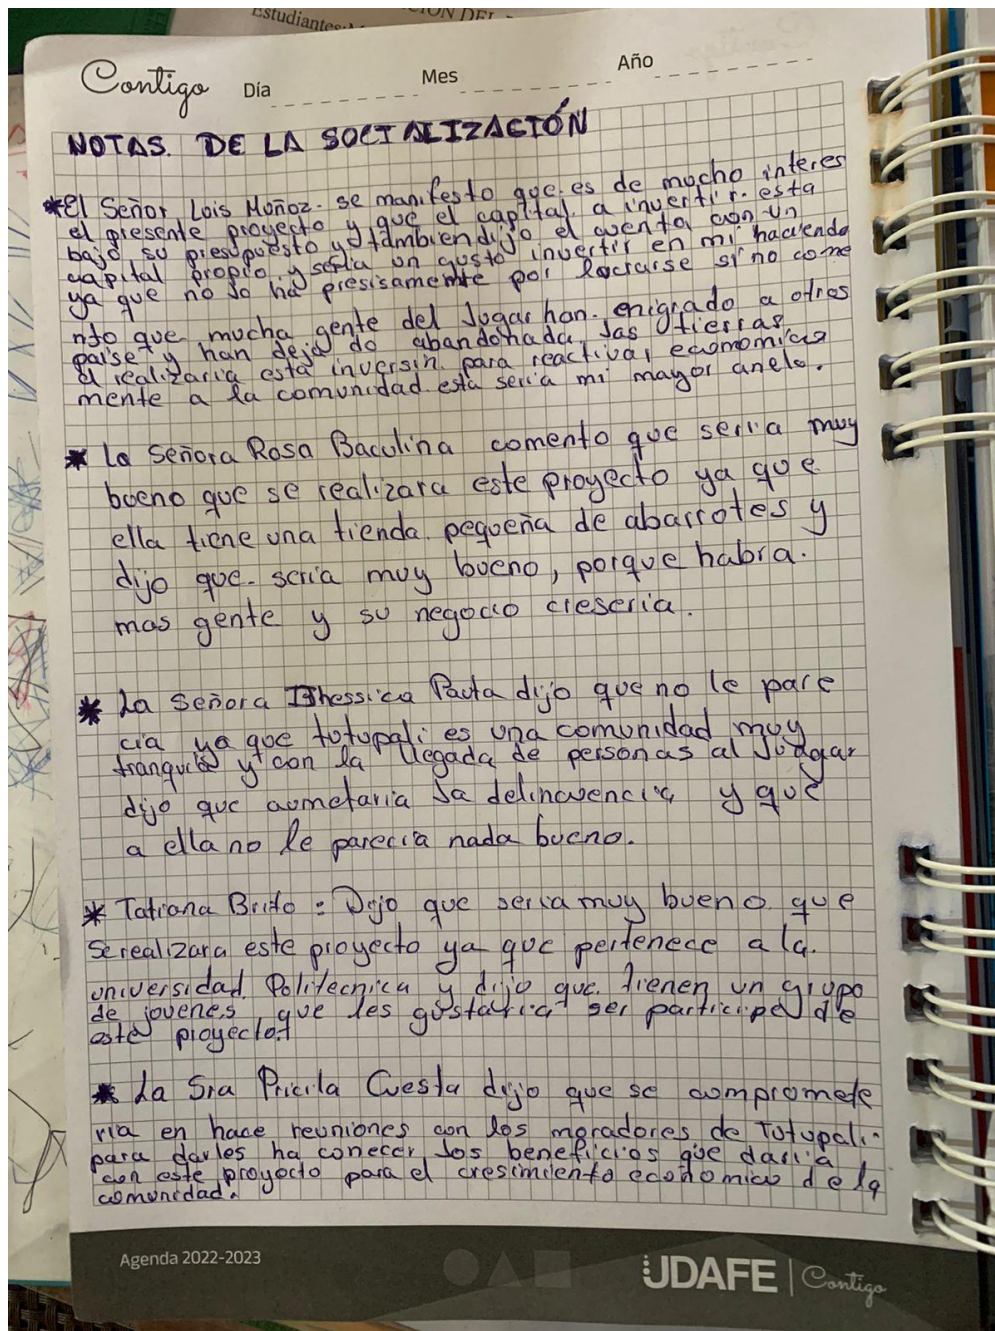 Estudiantes
Contigo Día Mes Año
NOTAS. DE LA SOCIALIZACIÓN
*El Señor Lois Muñoz. se manifesto que es de mucho interes
el presente proyecto y que el capital a invertir. esta
bajo su presupuesto y tambien dijo el cuenta con un
capital propio y seria un gusto invertir en mi hacienda
ya que no lo ha presisamemte por lucrarse si no come
nto que mucha gente del lugar han. enigrado a otros
paise y han deja do abandonada las tierras,
el realizaria esta inversin para reactivar economica
mente a la comunidad esta seria mi mayor anelo.
* La Señora Rosa Baculina comento que seria muy
bueno que se realizara este proyecto ya que
ella tiene una tienda. pequeña de abarrotes y
dijo que. seria muy bueno, porque habra.
mas gente y su negocio creseria.
* La Señora Jhessica Pauta dijo que no le pare
cia ya que totupali es una comunidad muy
tranquila y con la llegada de personas al lugar
dijo que aumetaria la delincuencia y que
a ella no le parecia nada bueno.
* Tatiana Brito : Dijo que seria muy bueno que
se realizara este proyecto ya que pertenece a la.
universidad Politecnica y dijo que tienen un grupo
de jovenes, que les gustaria ser participe de
este proyecto.
* La Sra Pricila Cuesta dijo que se compromete
ria en hace reuniones con los moradores de Totupali.
para darles ha conecer los beneficios que daria
con este proyecto para el cresimiento economico de la
comunidad.
Agenda 2022-2023
UDAFE | Contigo